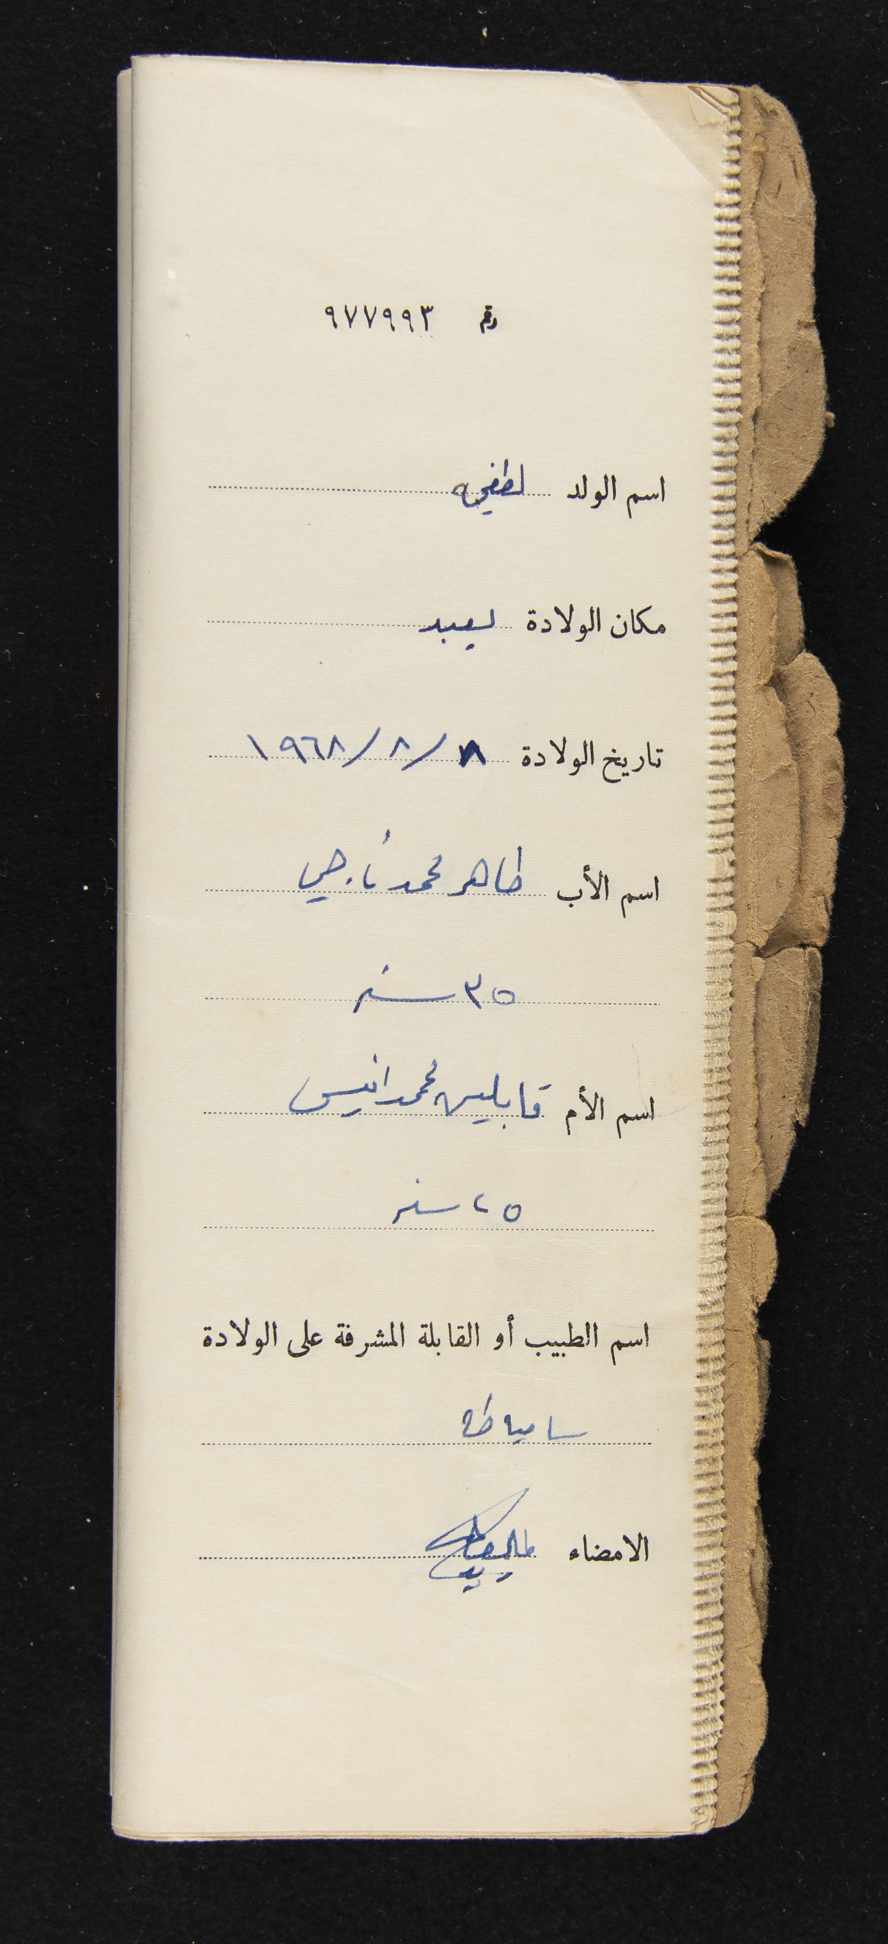 رقم ٩٧٧٩٩٣
اسم الولد لطفيه
مكان الولادة يعبد
تاريخ الولادة ٨/٨/١٩٦٨
اسم الأب طاهر محمد ناجي
٣٥ سنه
اسم الأم محمد انيس
٢٥ سنه
اسم الطبيب أو القابلة المشرفة على الولادة
الامضاء